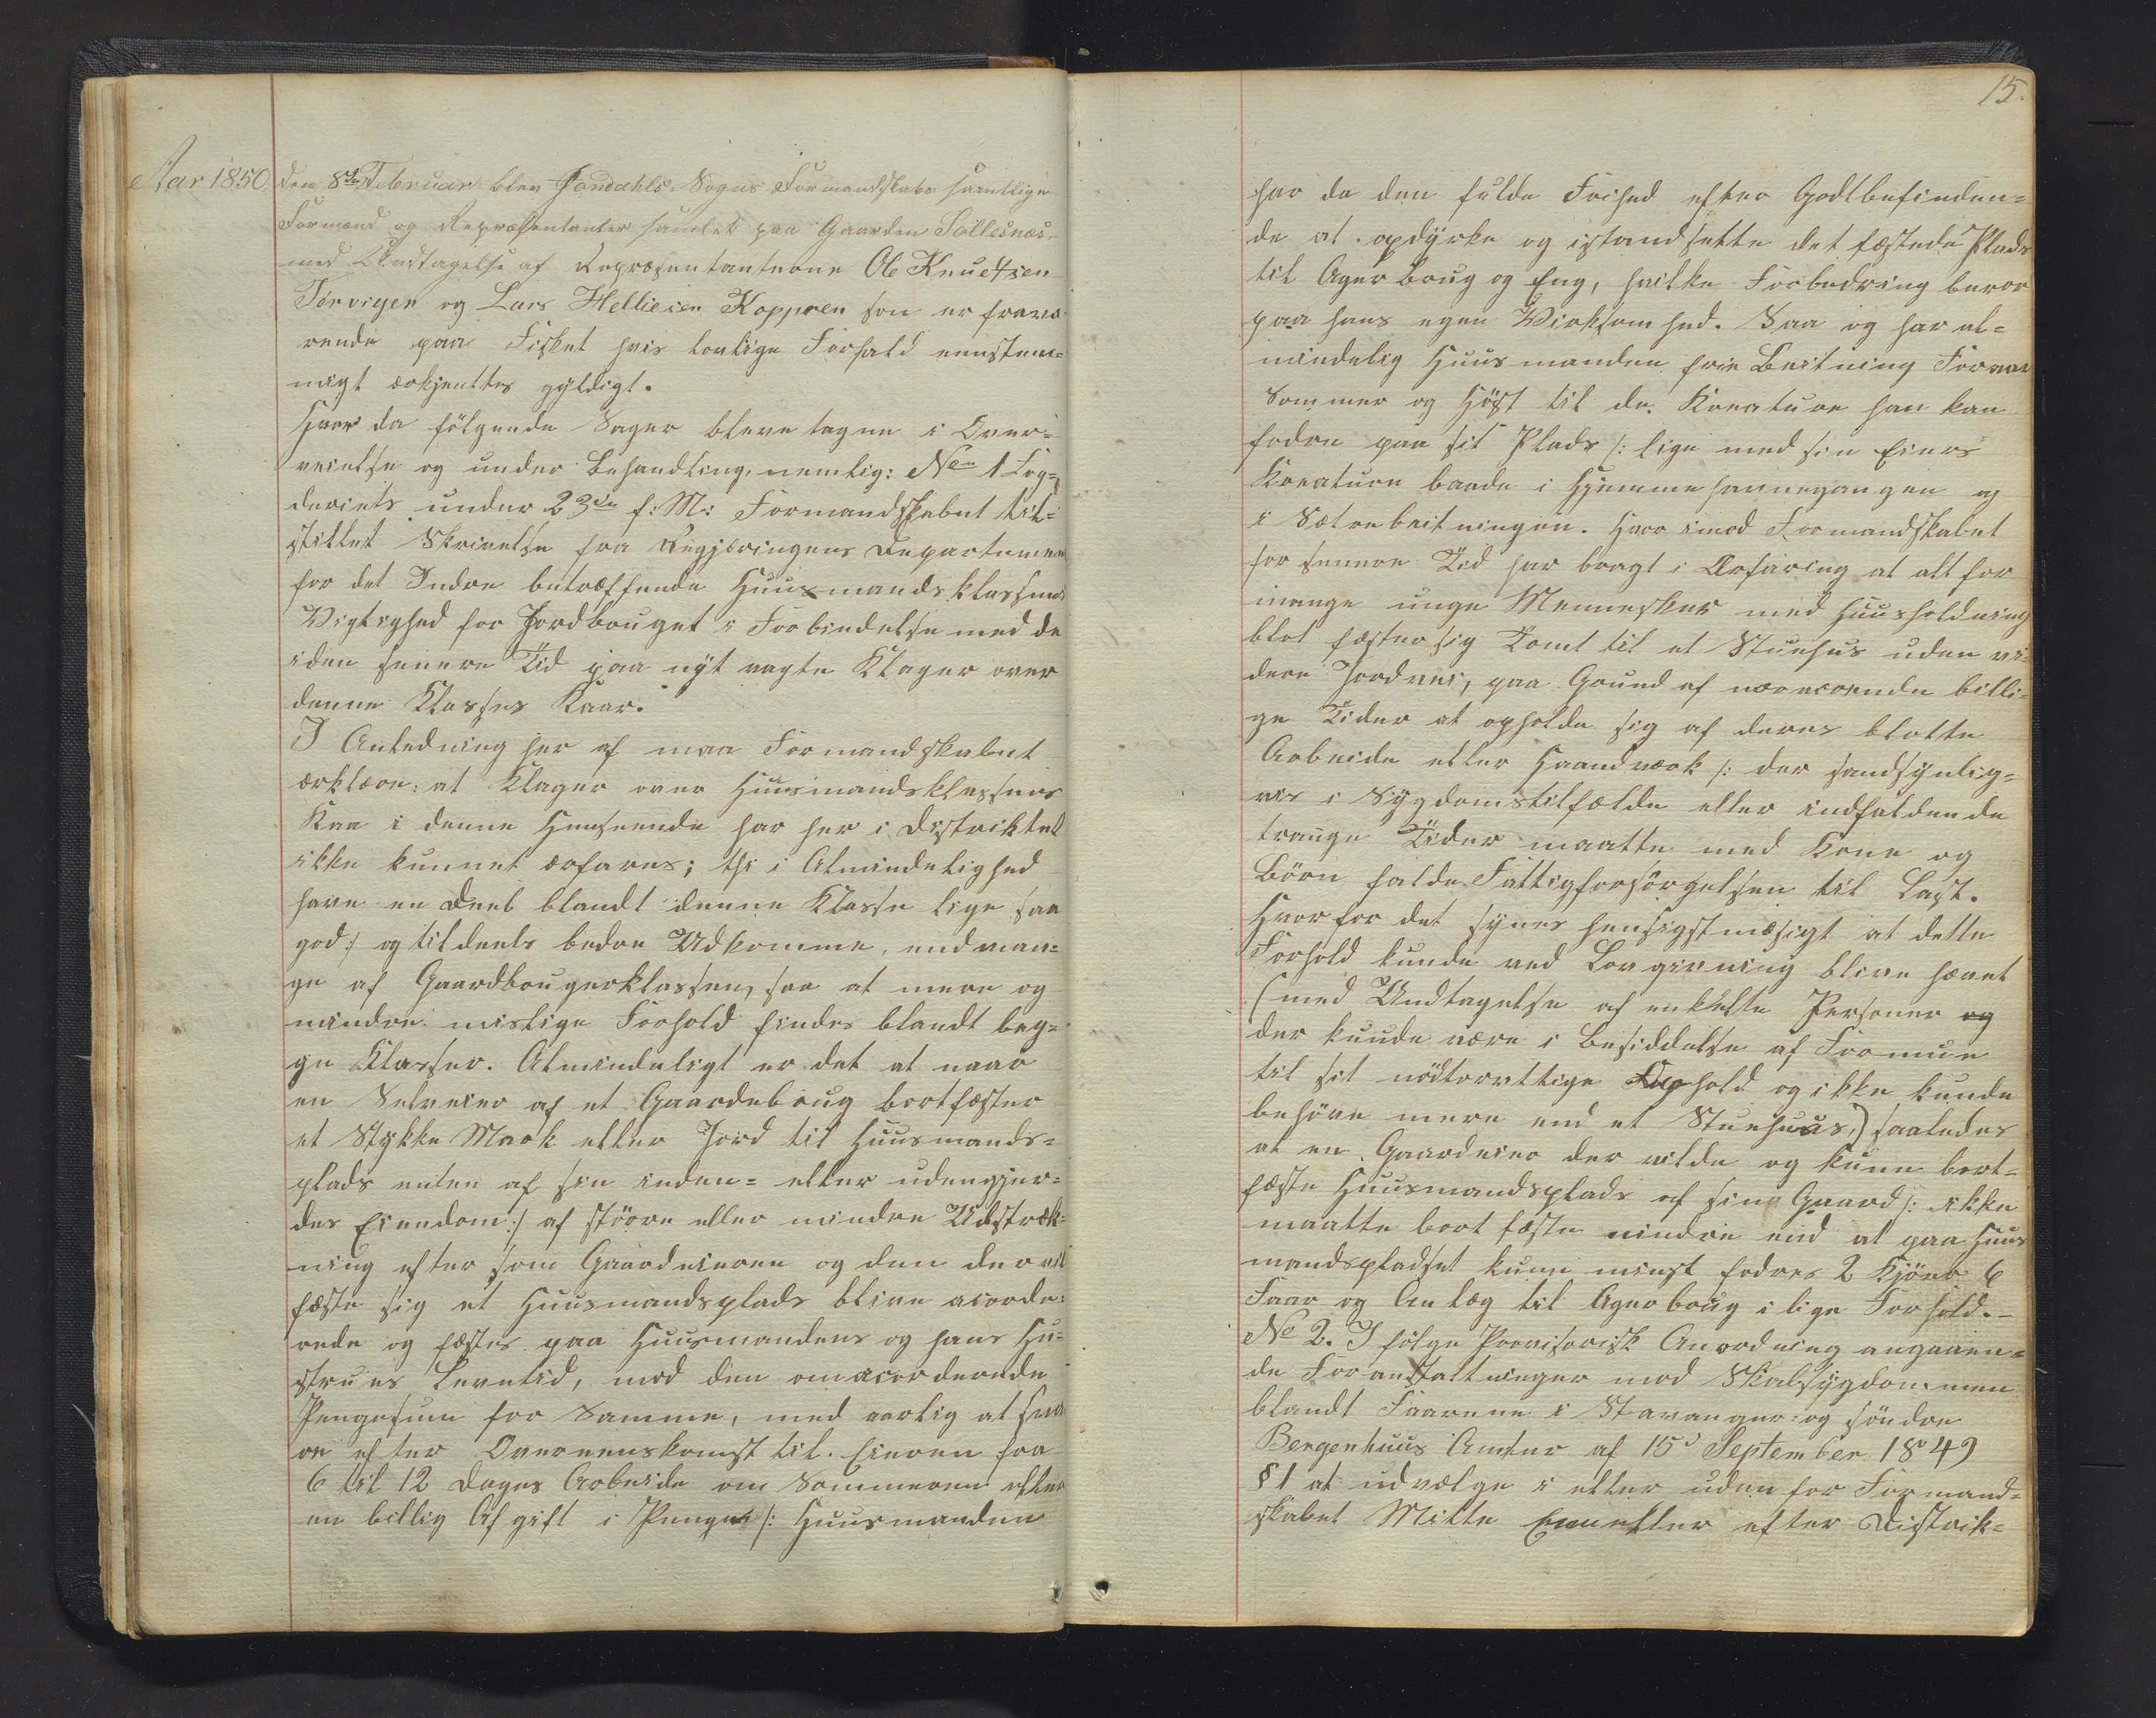 Aar 1850
den 8de Februar blev Jondahls Sogns Formandskabs samtlige
Formænd og Repræsentanter samlet paa Gaarden Sollesnæs
med Undtagelse af Repræsentanterne Ole Knudtsen
Torvigen og Lars Helliesen Kopperen som er fravæ-
rende paa Fisket hvis lovlige Forfald eenstem-
migt ærkjenttes gyldigt.
Hvor da fölgende Sager bleve tagne i Over-
veielse og under Behandling, nemlig: No 1 Fog-
deriets under 23de f: M: Formandskabet til-
stillet Skrivelse fra Regjeringens Departement
for det Indre betræffende Huusmandsklassens
Vigtighed for Jordbruget i Forbindelse med de
i den senere Tid paa nyt vagte Klager over
denne Klasses Kaar.
I Anledning her af maa Formandskabet
ærklære: at Klager over Huusmandsklassens
Kaa i denne Henseende har her i Distriktet
ikke kunnet ærfares; thi i Almindelighed
have en Deel blandt denne Klasse lige saa
god :/ og tildeels bedre Udkomme, end man-
ge af Gaardbrugerklassen, saa at mere og
mindre mislige Forhold findes blandt beg-
ge Klasser. Almindeligt er det at naar
en Selveier af et Gaardebrug bortfæster
et Stykke Mark eller Jord til Huusmands-
plads enten af sin inden- eller udengjer-
des Eiendom :/ af större eller mindre Udstræk-
ning efter som Gaardeieren og den der vil
fæste sig et Huusmandsplads blive acorde-
rede og fæstes paa Huusmandens og hans Hu-
strues Levetid, mod den omacorderede
Pengesum for Samme, med aarlig at sva-
re efter Overeenskomst til Eieren fra
6 til 12 Dages Arbeide om Sommeren eller
en billig Afgift i Penge /: Huusmanden
15.
har da den fulde Frihed efter Godtbefinden-
de at opdyrke og istandsette det fæstede Plads
til Ager Brug og Eng, hvilke Forbedring beror
paa hans egen Virksomhed. Saa og har al-
mindelig Huusmanden frie Beitning Foraar
Sommer og Höst til de Kreature han kan
fodre paa sit Plads /: lige med sin Eiers
Kreature baade i Hjemmehavnegangen og
i Sætrebeitningen. Hvor imod Formandskabet
for senere Tid har bragt i Ærfaring at alt for
mange unge Mennesker med Huusholdning
blot fæster sig Tomt til et Stuehus uden vi-
dere Jordvei, paa Grund af nærværende billi-
ge Tider at opholde sig af deres blotte
Arbeide eller Haandværk /: der sandsynlig-
vis i Sygdomstilfælde eller indfaldende
trange Tider maatte med Kone og
Börn falde Fattigforsörgelsen til Last.
Hvorfor det synes hensigtsmæsigt at dette
Forhold kunde ved Lovgivning blive hævet
(med Undtagelse af enkelte Personer og
der kunde være i Besiddelse af Formue
til sit nödtorvttige Ophold og ikke kunde
behöve mere end et Stuehuus,) saaledes
at en Gaardeier der vilde og kunne bort-
fæste Huusmandsplads af sin Gaard /: ikke
maatte bort fæste mindre end at paa Huus
mandspladset kunne minst fodres 2 Kjöer 6
Faar og Anlæg til Agerbrug i lige Forhold.-
No 2. I fölge Provisorisk Anordning angaaen-
de Foranstaltninger mod Skabsygdommen
blandt Faarene i Stavanger- og söndre
Bergenhuus Amter af 15d September 1849
§ 1 at udvælge i eller uden for Formand-
skabet Mitte Een eller efter Distrik-